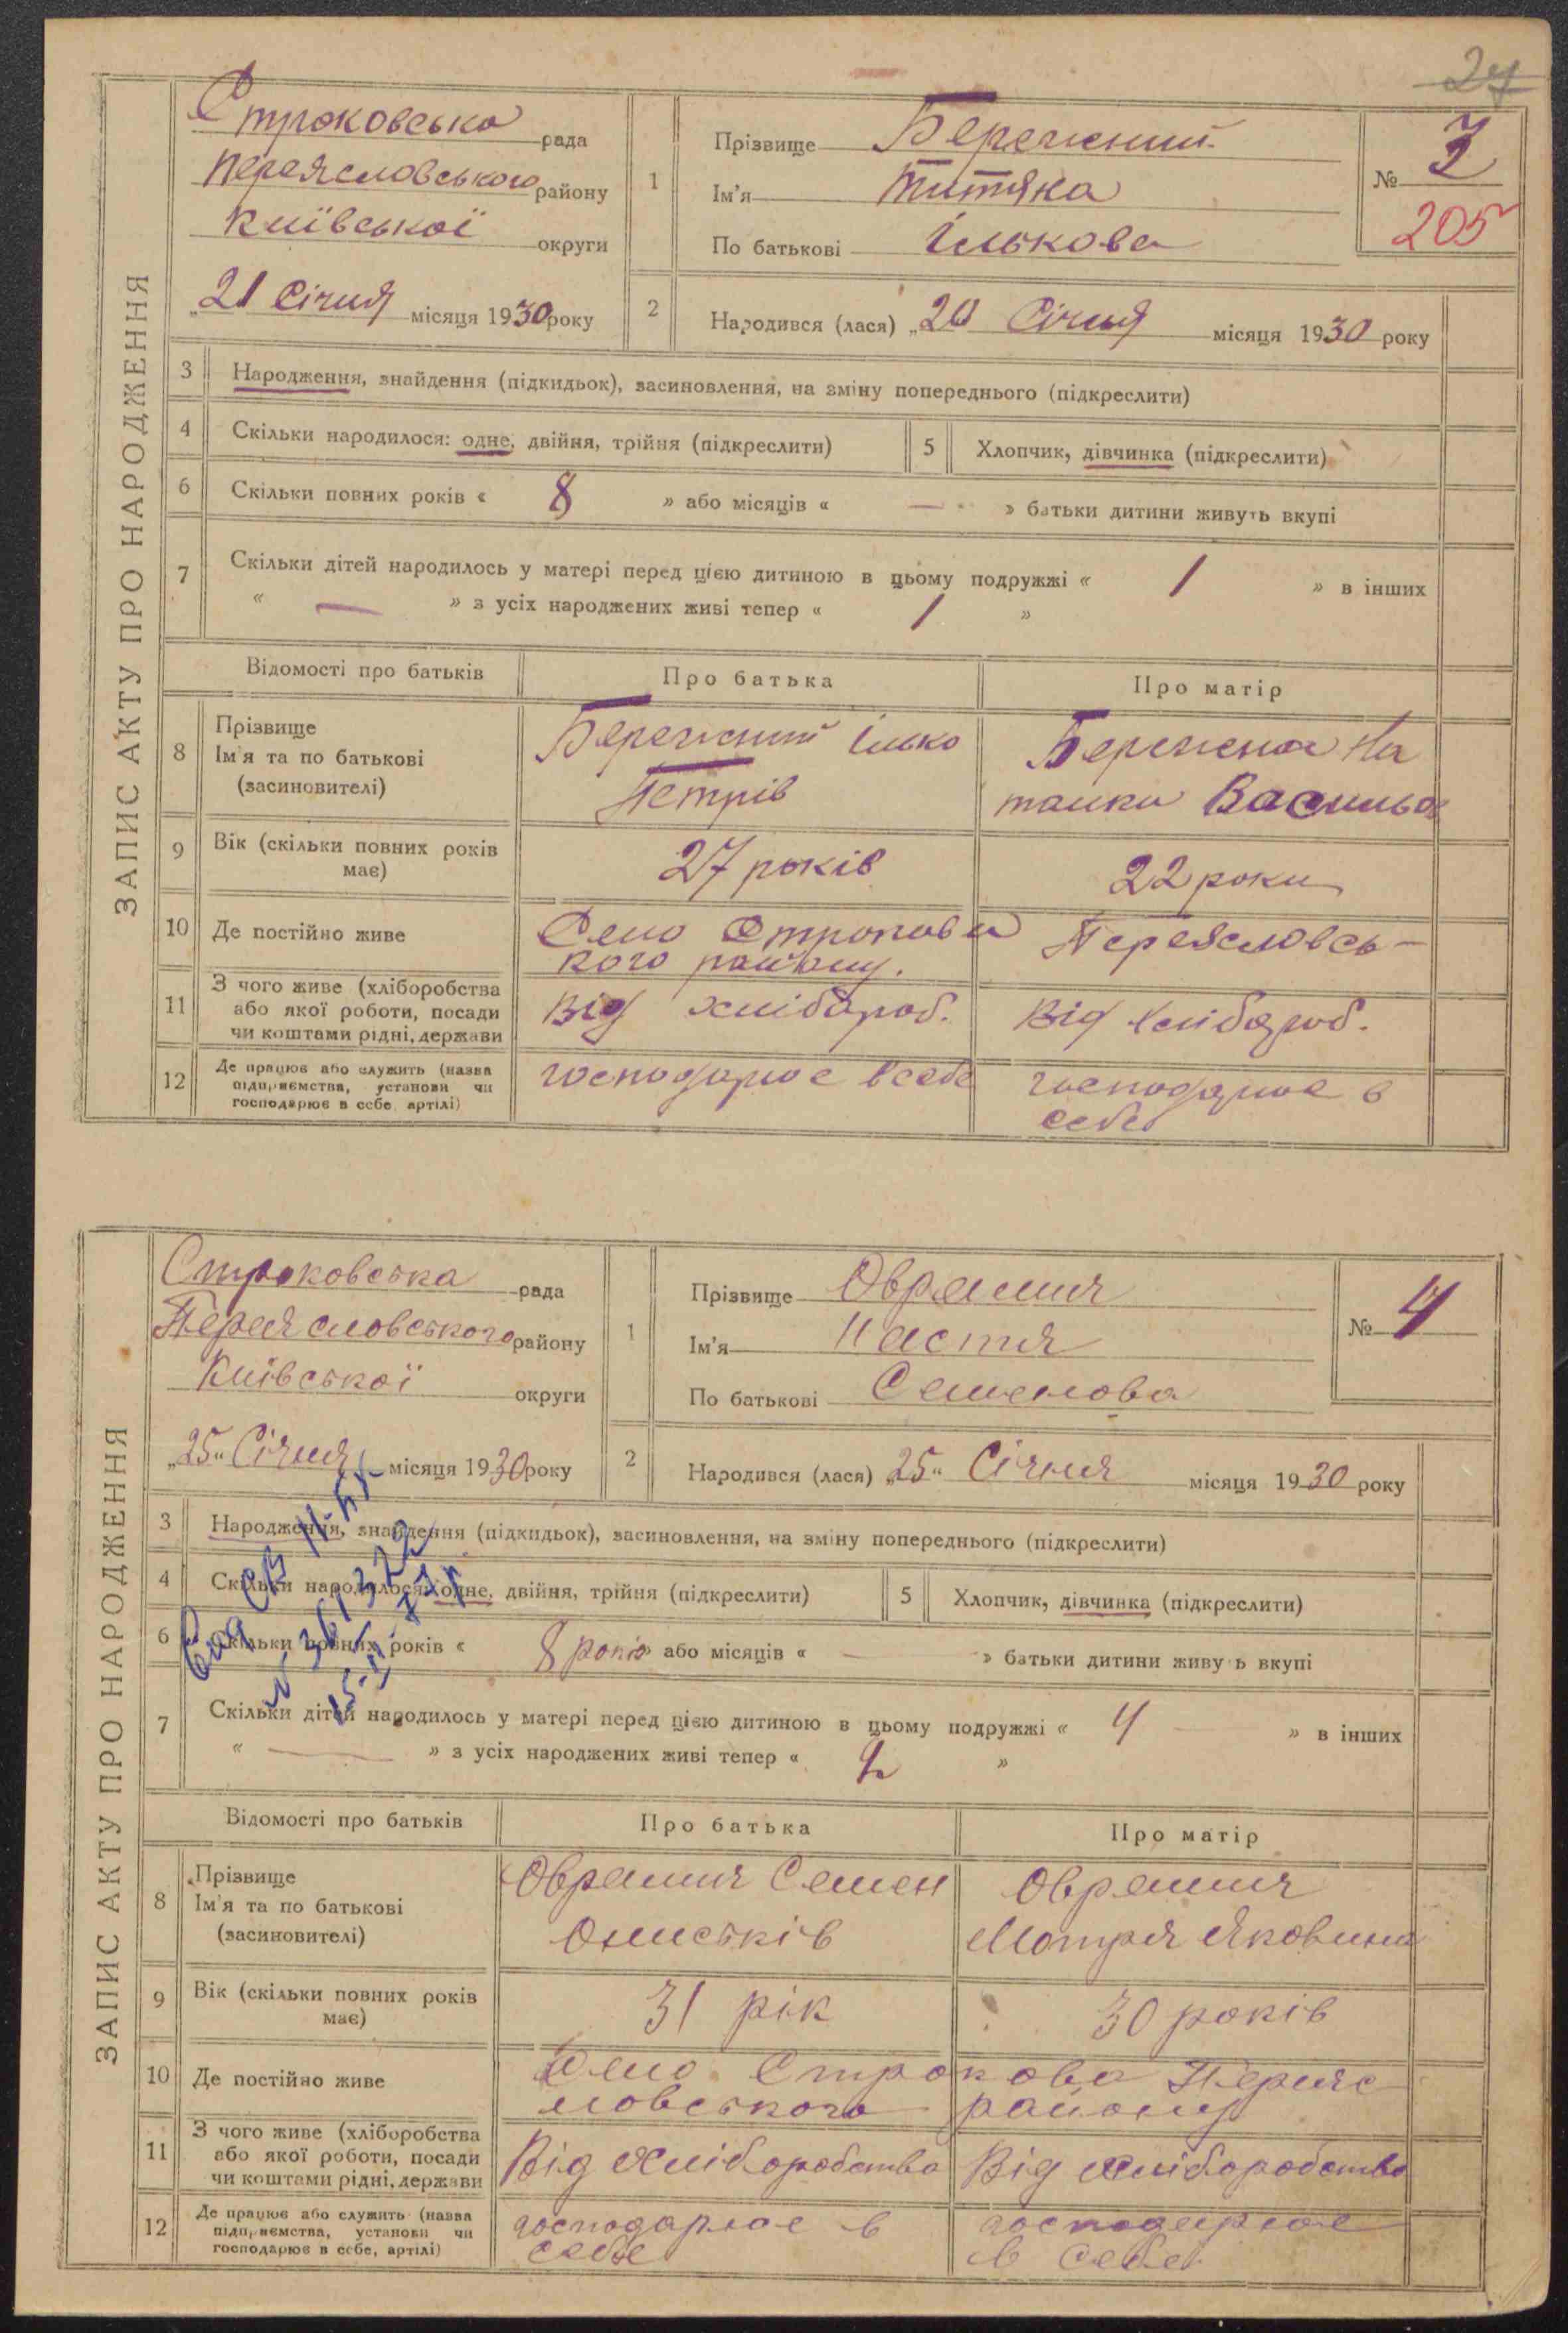 27
ЗАПИС АКТУ ПРО НАРОДЖЕННЯ
Строковська рада
Переясловського району
Київської округи
„21 Січня місяця 1930 року
1
Прізвище Бережний
Ім'я
По батькові Ількова
№ 3
205
2
Народився (лася) „20 Січня місяця 1930 року
3 Народження, знайдення (підкидьок), засиновлення, на зміну попереднього (підкреслити)
4 Скільки народилося: одне, двійня, трійня (підкреслити) 5 Хлопчик, дівчинка (підкреслити)
6 Скільки повних років « 8 » або місяців « — » батьки дитини живуть вкупі
7 Скільки дітей народилось у матері перед цією дитиною в цьому подружжі « 1 » в інших
« — » з усіх народжених живі тепер « 1 »
Відомості про батьків Про батька Про матір
8 Прізвище
Ім'я та по батькові
(засиновителі)
Бережний Ілько
Петрів
Бережна На
талка Васильов
9 Вік (скільки повних років
має)
27 років
22 роки
10 Де постійно живе
Село Строкова Переясловсь-
кого району.
11 З чого живе (хліборобства
або якої роботи, посади
чи коштами рідні, держави
Від хлібороб.
Від хлібороб.
12 Де працює або служить (назва
підприємства, установи чи
господарює в себе, артілі)
господарює в себе
господарює в
себе
ЗАПИС АКТУ ПРО НАРОДЖЕННЯ
Строковська рада
Переясловського району
Київської округи
„25" Січня місяця 1930 року
1
Прізвище Оврамия
Ім'я Настя
По батькові Семенова
№ 4
2
Народився (лася) 25" Січня місяця 1930 року
3 Народження, знайдення (підкидьок), засиновлення, на зміну попереднього (підкреслити)
4 Скільки народилося: одне, двійня, трійня (підкреслити) 5 Хлопчик, дівчинка (підкреслити)
6 Скільки повних років « 8 років » або місяців « — » батьки дитини живуть вкупі
7 Скільки дітей народилось у матері перед цією дитиною в цьому подружжі « 4 — » в інших
« — » з усіх народжених живі тепер « »
Відомості про батьків Про батька Про матір
8 Прізвище
Ім'я та по батькові
(засиновителі)
Оврамия Семен
Ониськів
Оврамия
Мотря Яковина
9 Вік (скільки повних років
має)
31 рік
30 років
10 Де постійно живе
Село Строкова Переяс
ловського району
11 З чого живе (хліборобства
або якої роботи, посади
чи коштами рідні, держави
Від хліборобства
Від хліборобства
12 Де працює або служить (назва
підприємства, установи чи
господарює в себе, артілі)
господарює в
себе
господарює
в себе